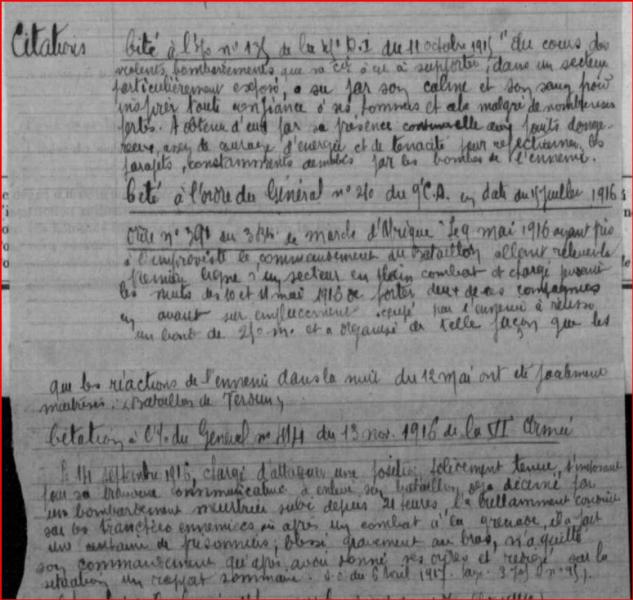 Citations
Cité à l'O/O n° 135 de la D.I du 11 octobre 1915 "Au cours des
violents bombardements que sa Cie a eu à supporter, dans un secteur
particulièrement exposé, a su par son calme et son sang froid
inspirer toute confiance à ses hommes et cela malgré de nombreuses
pertes. A obtenu d'eux par sa présence continuelle aux points dange-
reux, assez de courage d'énergie et de tenacité pour refectionner les
parapets, constamments démolis par les bombes de l'ennemi.
Cité à l'ordre du Général n° 210 du 9e C.A. en date du 15 juillet 1916
Ordre n° 391 du 3e de marche d'Afrique "Le 9 mai 1916 ayant pris
à l'improviste le commandement du Bataillon allant relever la
première ligne d'un secteur en plein combat et chargé pendant
les nuits des 10 et 11 mai 1916 de porter deux de ses compagnies
en avant sur emplacement occupé par l'ennemi a réussi
un bond de 250 m. et a organisé de telle façon que les
que les réactions de l'ennemi dans la nuit du 12 mai ont été
meurtrières. (Bataillon de Verdun)
Citation à l'O. du Général n° 414 du 13 nov. 1916 de la VI Armée
Le 14 septembre 1916, chargé d'attaquer une position fortement tenue, s'imposant
par sa bravoure communicative, a enlevé son bataillon, déjà décimé par
un bombardement meurtrier subi depuis 24 heures, l'a brillamment conduit
sur les tranchées ennemies où après un combat à la grenade, il a fait
une centaine de prisonniers; blessé gravement au bras, n'a quitté
son commandement qu'après avoir donné ses ordres et redigé sur la
situation un rapport sommaire. J.O. du 6 Avril 1917.